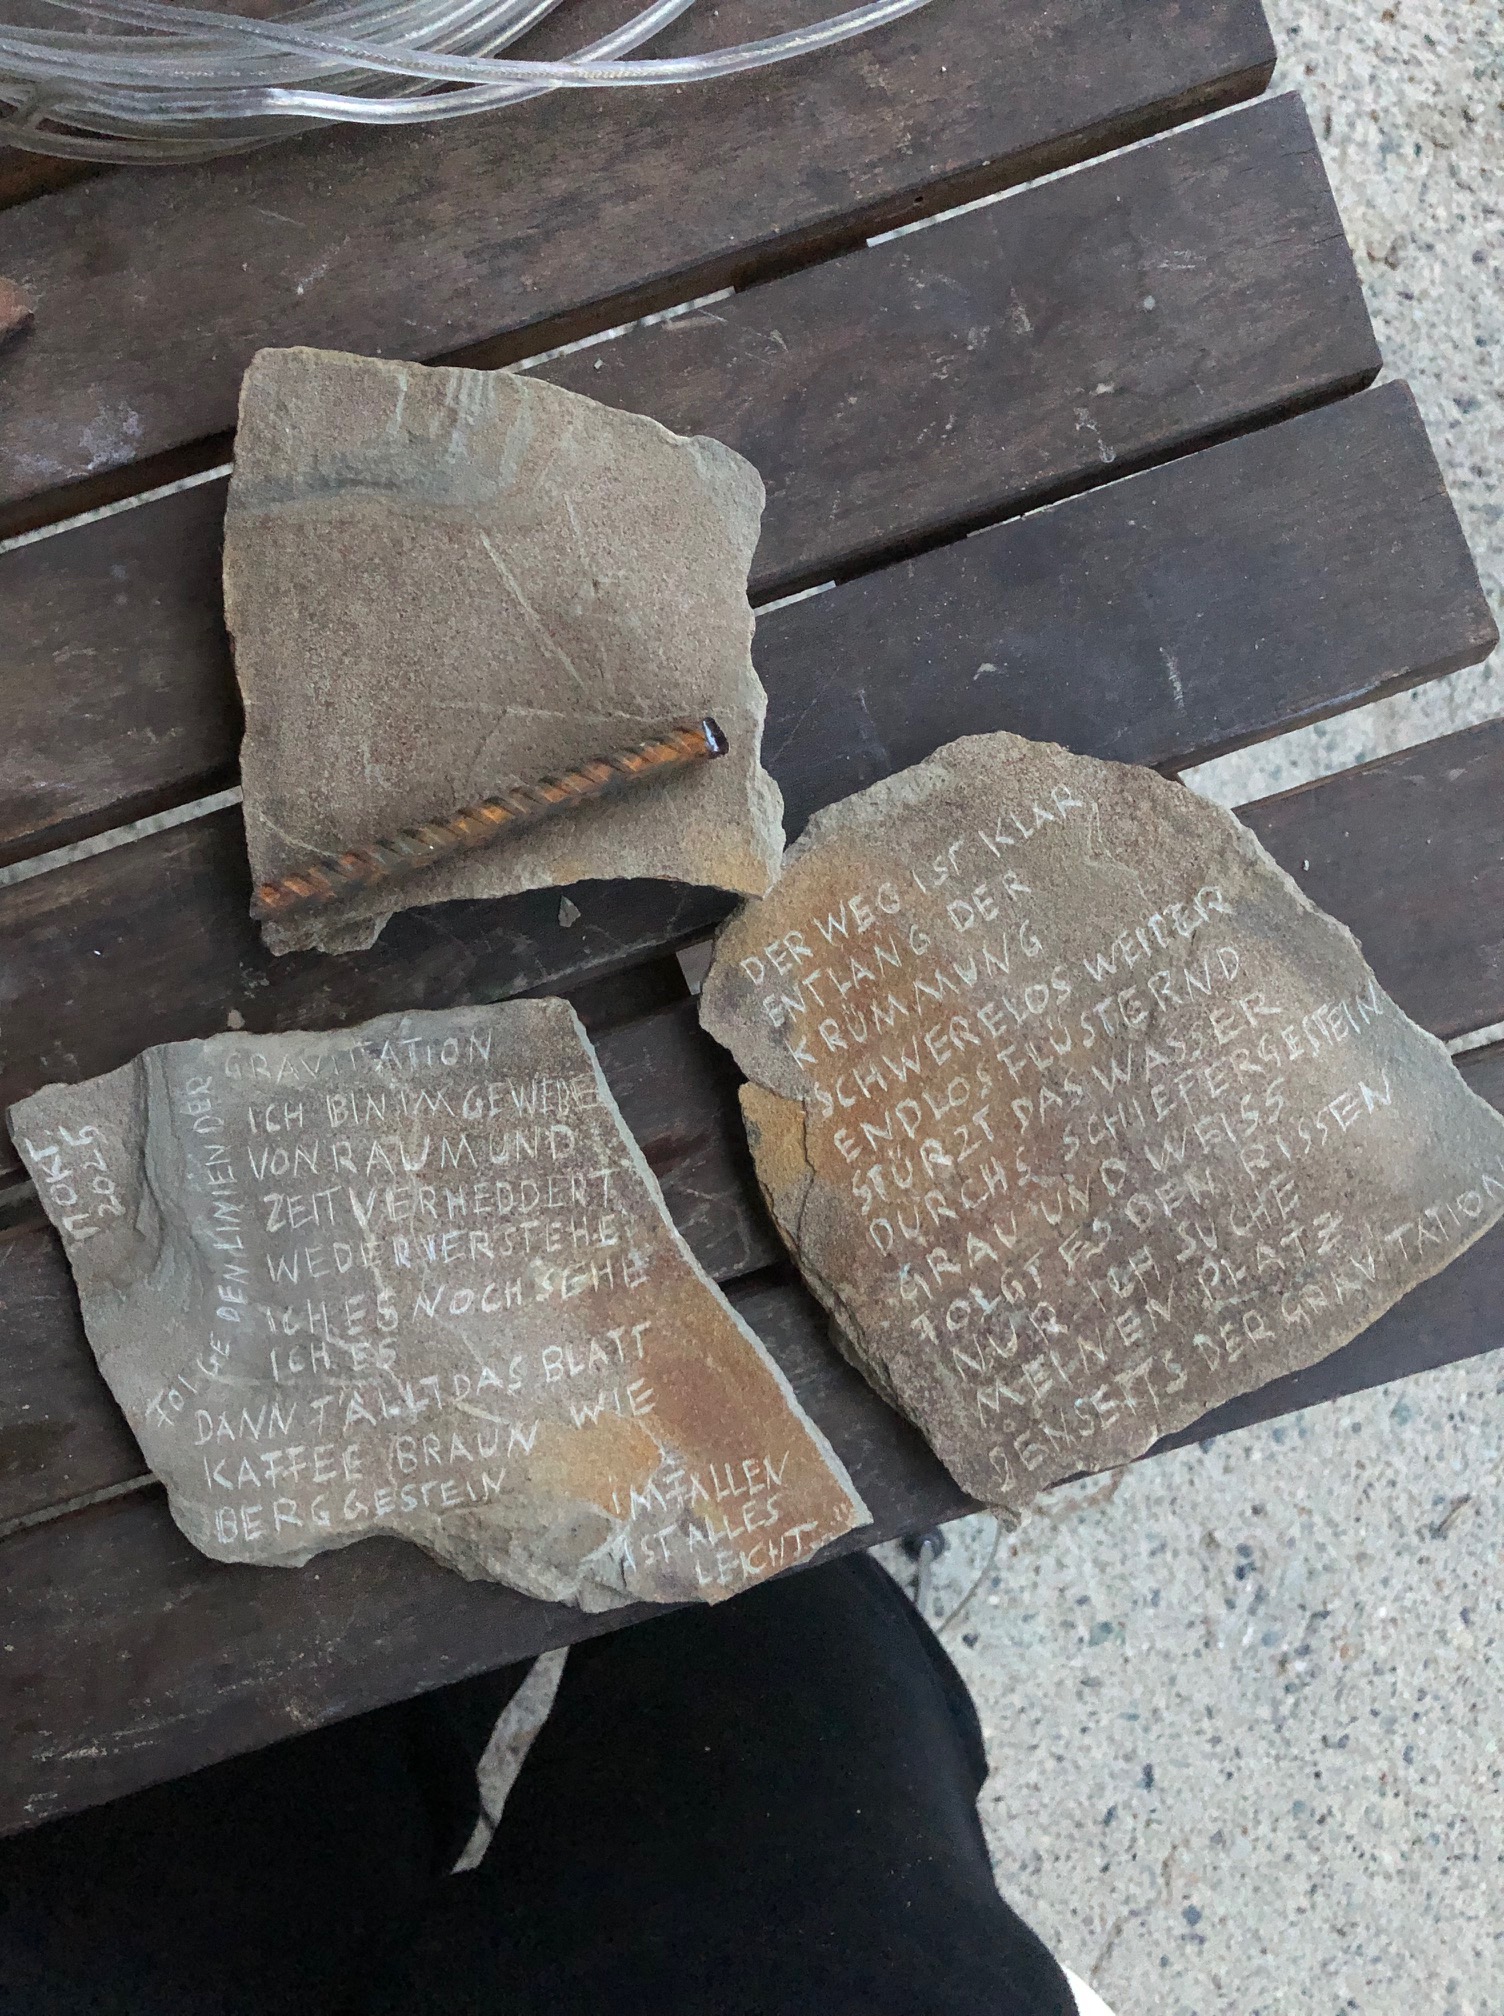 GRAVITATION
ICH BIN IM GEWEBE
VON RAUM UND
ZEIT VERHEDDERT
WEDER VERSTEHE
ICH ES NOCH SEHE
ICH ES
DANN FÄLLT DAS BLATT
KAFFEE BRAUN WIE
BERGGESTEIN
IM FALLEN
IST ALLES
LEICHT...
FOLGE DEN LINIEN DER
2025
DER WEG IST KLAR
ENTLANG DER
KRÜMMUNG
SCHWERELOS WEITER
ENDLOS FLÜSTERND
STÜRZT DAS WASSER
DURCHS SCHIEFERGESTEIN
GRAU UND WEISS
FOLGT ES DEN RISSEN
NUR ICH SUCHE
MEINEN PLATZ
JENSEITS DER GRAVITATION